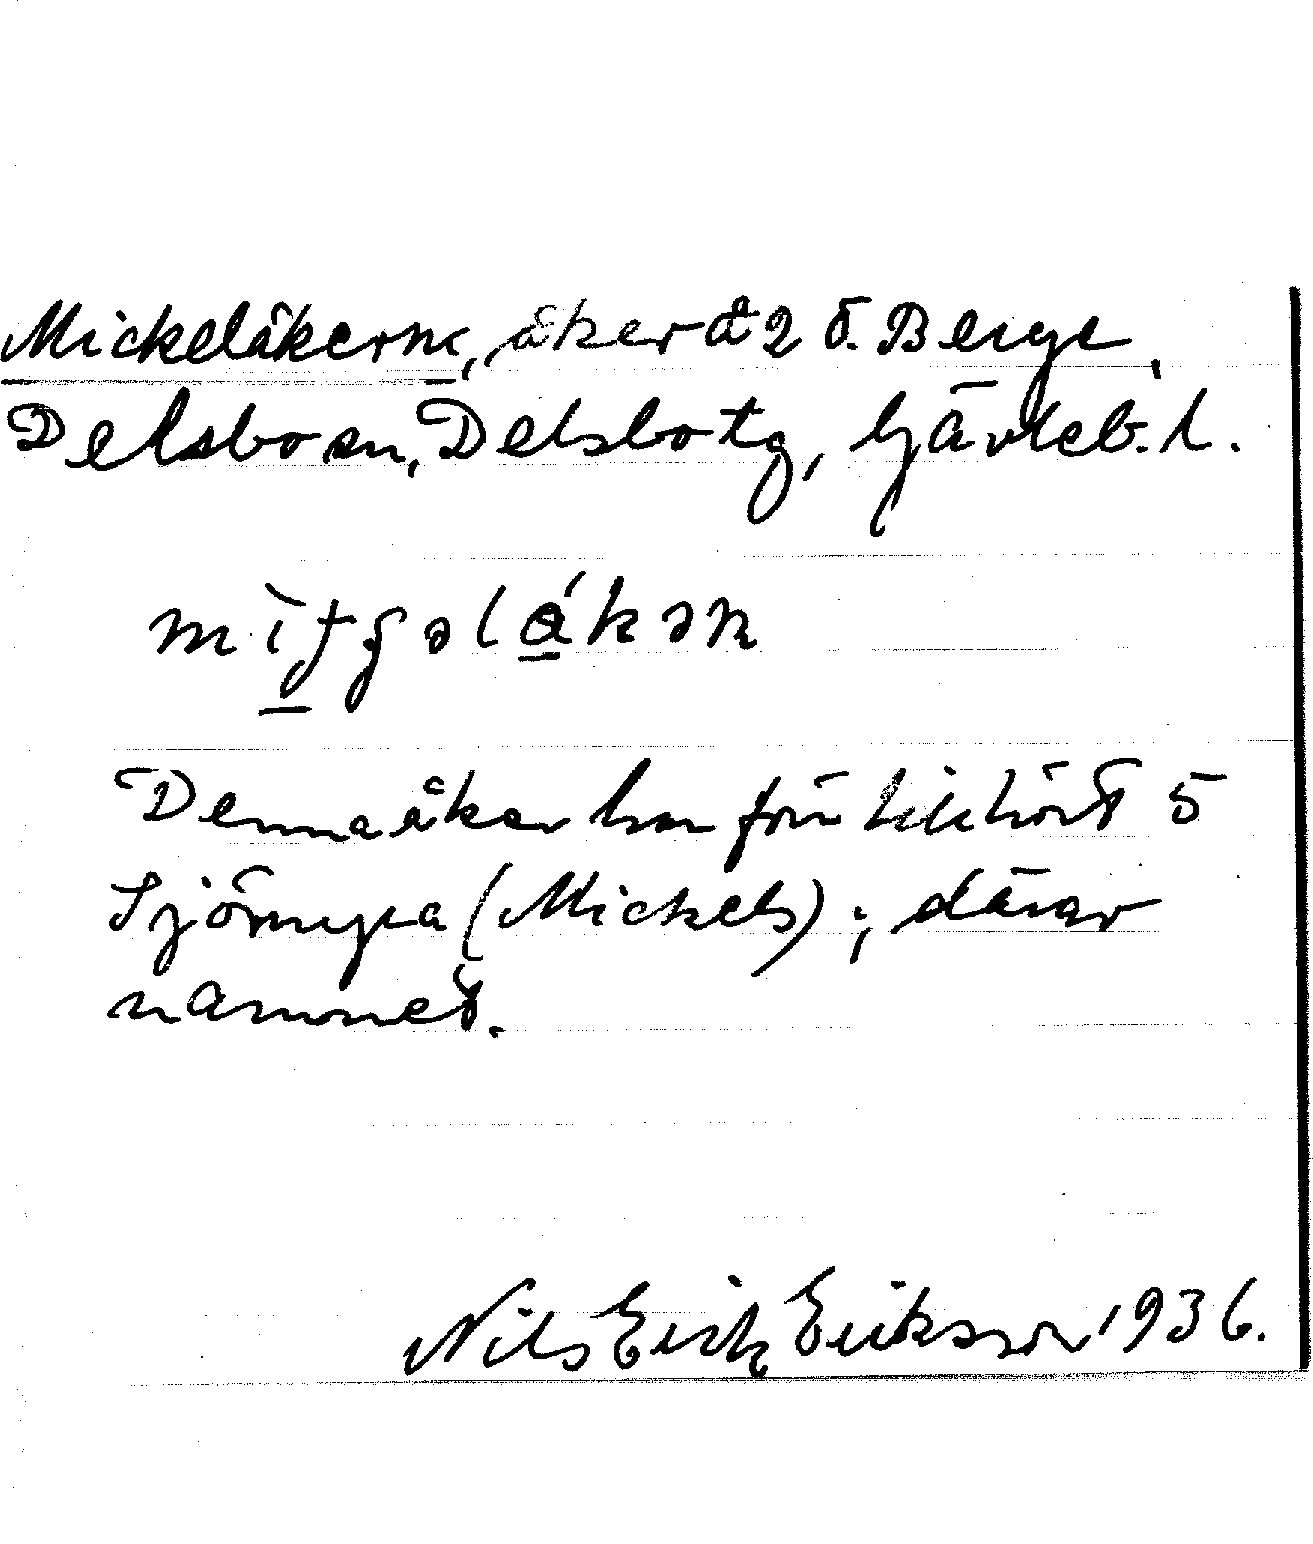 Mickelåkern, åker å 2 Ö. Berge,
Delsbo sn, Delsbo tg, Gävleb. l.
mìʃgəlákən
Denna åker har förr tillhört 5
Sjömyra (Mickels); därav
namnet.
Nils Erik Eriksson 1936.